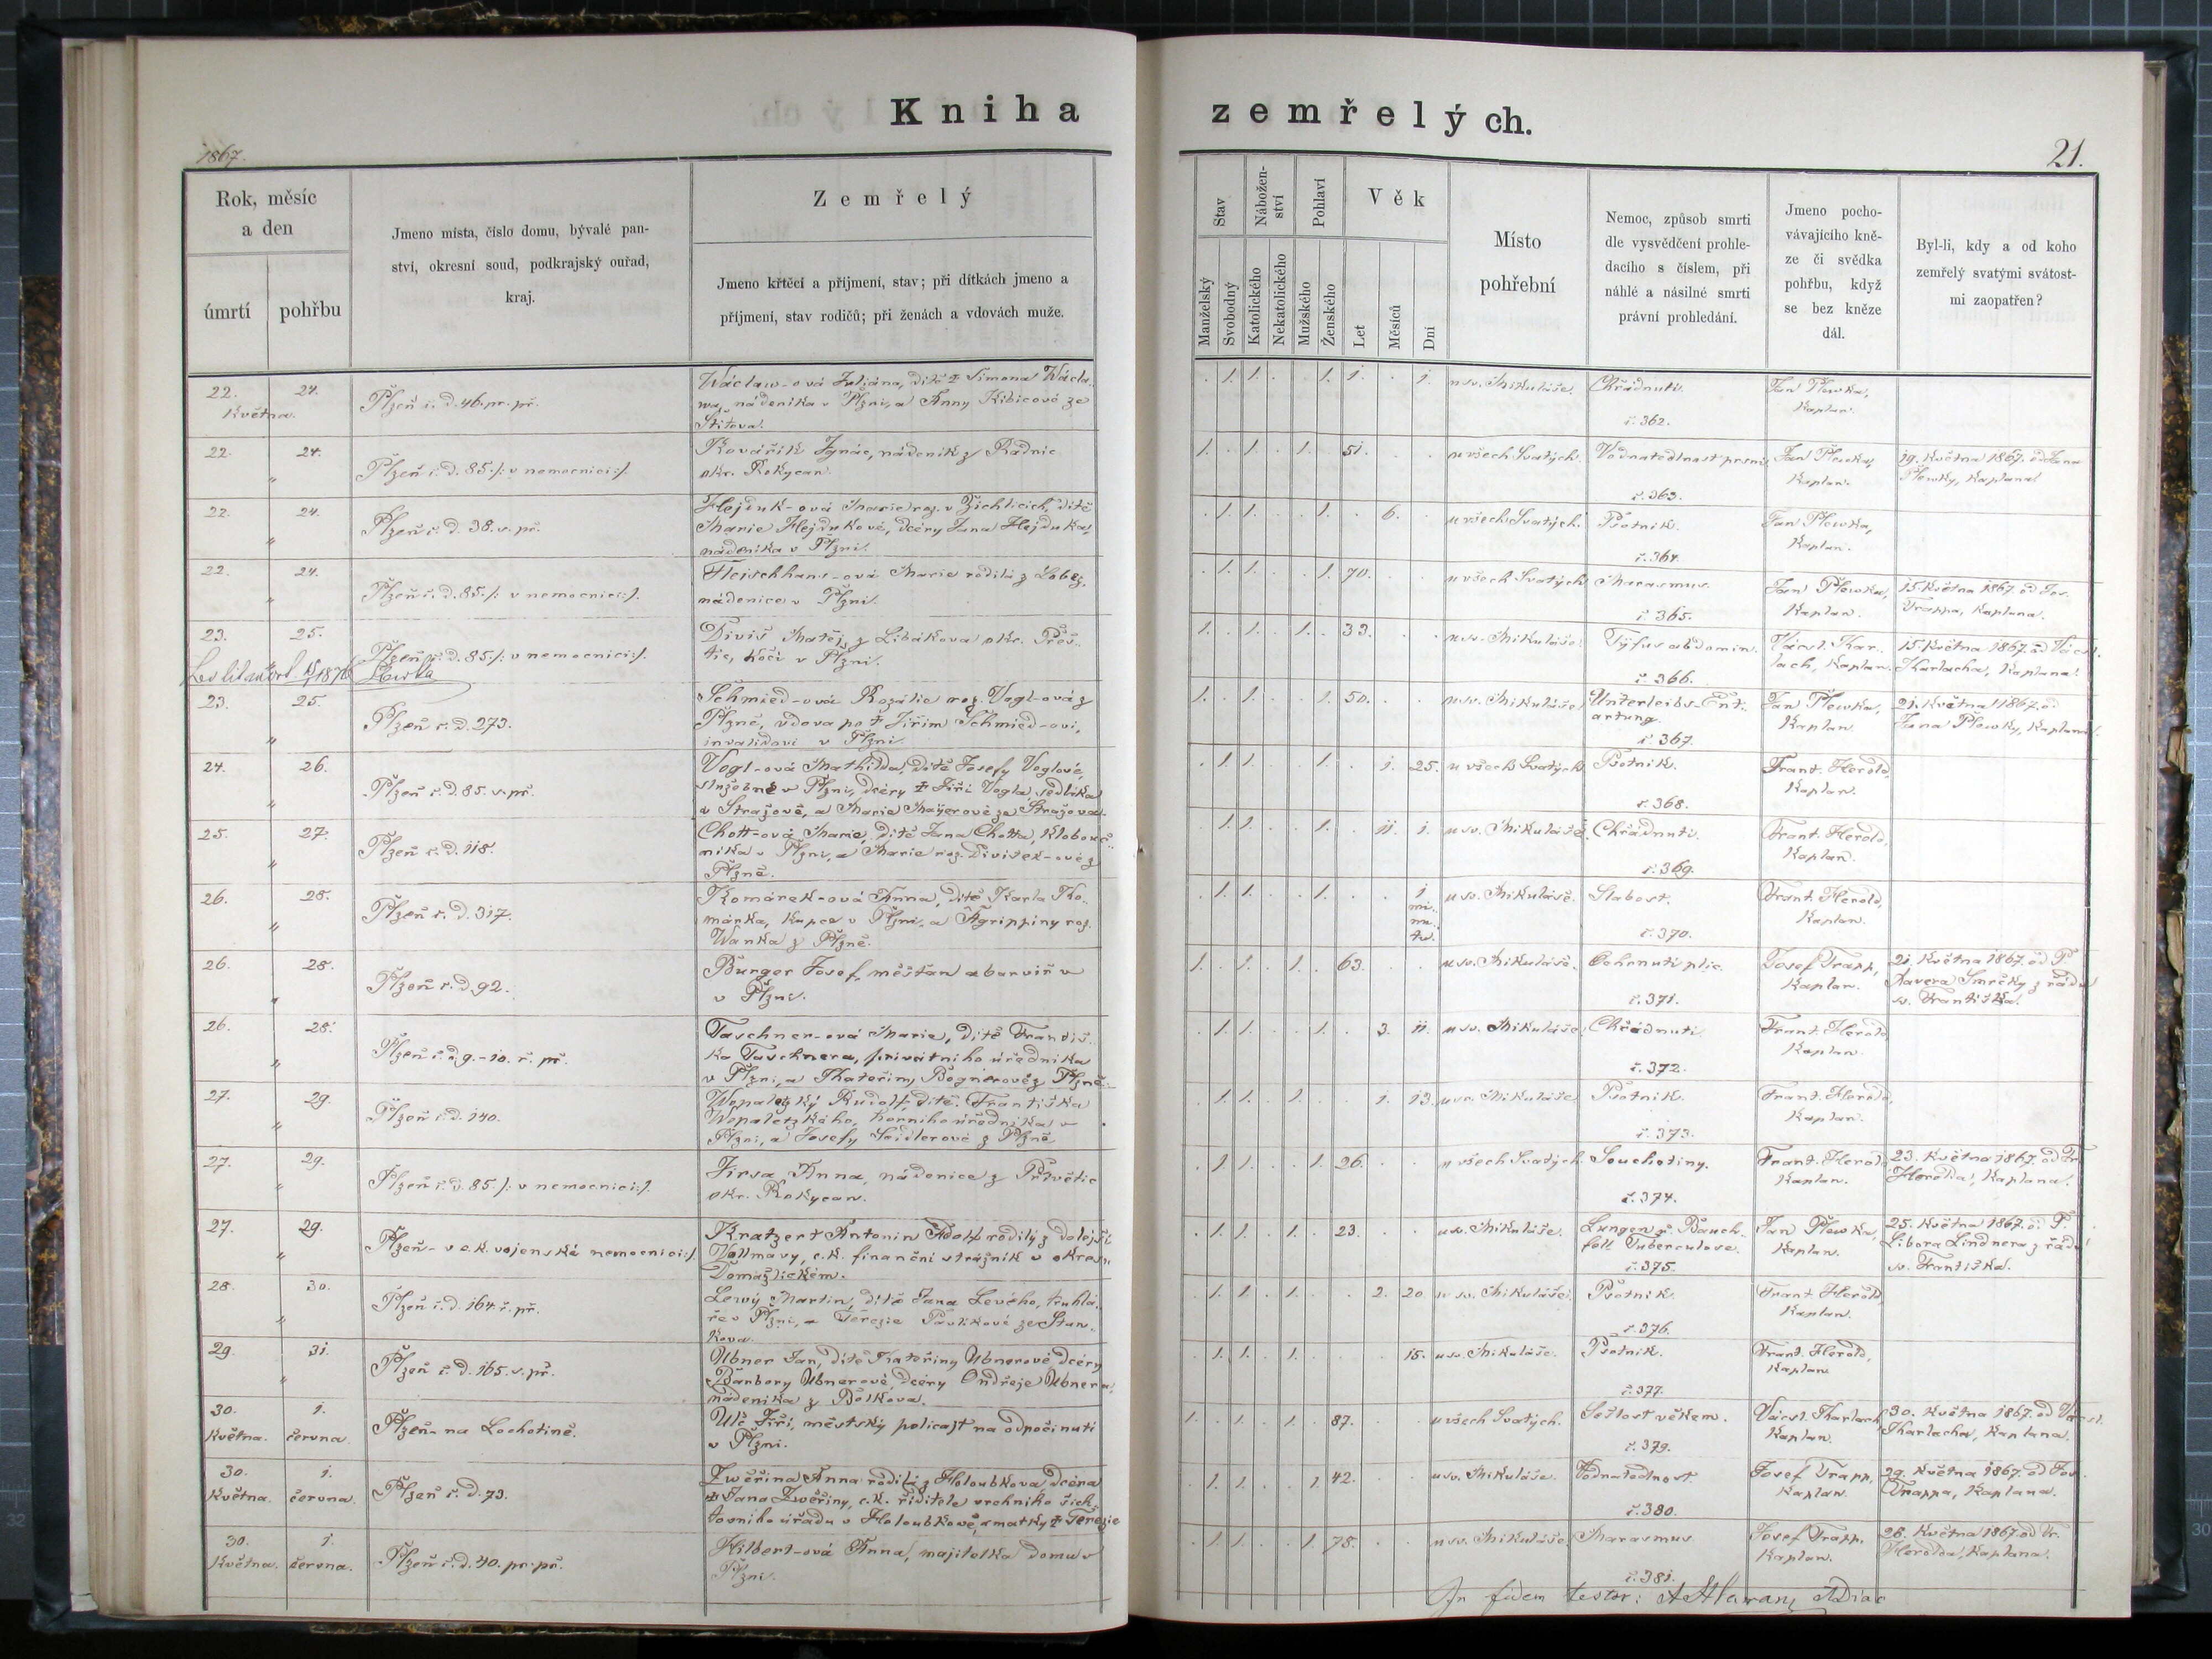 Kniha zemřelých.
1867.
21.
Rok, měsíc
a den
úmrtí
pohřbu
Jmeno místa, číslo domu, bývalé pan-
ství, okresní soud, podkrajský ouřad,
kraj.
Zemřelý
Jmeno křtěcí a příjmení, stav; při dítkách jmeno a
příjmení, stav rodičů; při ženách a vdovách muže.
Stav
Nábožen-
ství
Pohlaví
Věk
Manželský
Svobodný
Katolického
Nekatolického
Mužského
Ženského
Let
Měsíců
Dní
Místo
pohřební
Nemoc, způsob smrti
dle vysvědčení prohle-
dacího s číslem, při
náhlé a násilné smrti
právní prohledání.
Jmeno pocho-
vávajícího kně-
ze či svědka
pohřbu, když
se bez kněze
dál.
Byl-li, kdy a od koho
zemřelý svatými svátost-
mi zaopatřen?
22. 24.
Května.
Plzeň č. d. 46. pr. př.
Wáclaw-ová Juliána, dítě † Simona Wácla-
wa, nádeníka v Plzni, a Anny Kibicové ze
Štítova.
1. 1. 1. 1. 1.
u sv. Mikuláše.
Chřádnutí.
č. 362.
Jan Plewka,
Kaplan.
22. 24.
"
Plzeň č. d. 85. /: v nemocnici :/.
Kovářík Ignác, nádeník z Radnic
okr. Rokycan.
1. 1. 1. 51.
u všech Svatých.
Vodnatedlnost prsní
č. 363.
Jan Plewka,
Kaplan.
19. Května 1867. od Jana
Plewky, Kaplana.
22. 24.
"
Plzeň č. d. 38. s. př.
Hejduk-ová Marie roz. v Žichlicích, dítě
Marie Hejdukové, dcéry Jana Hejduka,
nádeníka v Plzni.
1. 1. 1. 6.
u všech Svatých.
Psotník.
č. 364.
Jan Plewka,
Kaplan.
22. 24.
"
Plzeň č. d. 85. /: v nemocnici :/.
Fleischhans-ová Marie rodilá z Lobez,
nádenice v Plzni.
1. 1. 1. 70.
u všech Svatých
Marasmus.
č. 365.
Jan Plewka,
Kaplan.
15. Května 1867. od Jos.
Trappa, Kaplana.
23. 25.
"
Plzeň č. d. 85. /: v nemocnici :/.
Diviš Matěj, z Libákova okr. Přeš-
tic, kočí v Plzni.
1. 1. 1. 33.
u sv. Mikuláše.
Tyfus abdomin.
č. 366.
Václ. Kar-
lach, Kaplan.
15. Května 1867. od Václ.
Karlacha, Kaplana.
23. 25.
"
Plzeň č. d. 273.
Schmied-ová Rozálie roz. Vogl-ová z
Plzně, vdova po † Jiřím Schmied-ovi,
invalidovi v Plzni.
1. 1. 1. 50.
u sv. Mikuláše.
Unterleibs-Ent-
artung.
č. 367.
Jan Plewka,
Kaplan.
21. Května 1867. od
Jana Plewky, Kaplana.
24. 26.
"
Plzeň č. d. 85. s. př.
Vogl-ová Mathilda, dítě Josefy Voglové,
služebné v Plzni, dcéry † Jiří Vogla, sedláka
v Strašově, a Marie Mayerové ze Strašova.
1. 1. 1. 1. 25.
u všech Svatých
Psotník.
č. 368.
Frant. Herold,
Kaplan.
25. 27.
"
Plzeň č. d. 118.
Chott-ová Marie, dítě Jana Chotta, klobouč-
níka v Plzni, a Marie roz. Divišek-ové z
Plzně.
1. 1. 1. 11. 1.
u sv. Mikuláše.
Chřádnutí.
č. 369.
Frant. Herold,
Kaplan.
26. 28.
"
Plzeň č. d. 317.
Komárek-ová Anna, dítě Karla Ko-
márka, kupce v Plzni, a Agrippiny roz.
Wanka z Plzně.
1. 1. 1. 1
mi-
nu-
tu.
u sv. Mikuláše.
Slabost.
č. 370.
Frant. Herold,
Kaplan.
26. 28.
"
Plzeň č. d. 92.
Burger Josef, měšťan a barvíř v
v Plzni.
1. 1. 1. 63.
u sv. Mikuláše.
Ochrnutí plic.
č. 371.
Josef Trapp,
Kaplan.
21. Května 1867. od P.
Xavera Smrčky z řádu
sv. Františka.
26. 28.
"
Plzeň č. d. 9.-10. ř. př.
Taschner-ová Marie, dítě Františ-
ka Taschnera, privátního úředníka
v Plzni, a Kateřiny Bognerové z Plzně.
1. 1. 1. 3. 11.
u sv. Mikuláše.
Chřádnutí.
č. 372.
Frant. Herold
Kaplan.
27. 29.
"
Plzeň č. d. 140.
Wopaletzký Rudolf, dítě Františka
Wopaletzkého, horního úředníka v
Plzni, a Josefy Seidlerové z Plzně
1. 1. 1. 1. 13.
u sv. Mikuláše
Psotník.
č. 373.
Frant. Herold,
Kaplan.
27. 29.
"
Plzeň č. d. 85. /: v nemocnici :/.
Jirsa Anna, nádenice z Přívětic
okr. Rokycan.
1. 1. 1. 26.
u všech Svatých.
Souchotiny.
č. 374.
Frant. Herold
Kaplan.
23. Května 1867. od Fr.
Herolda, Kaplana.
27. 29.
"
Plzeň - v c. k. vojenské nemocnici :/.
Kratzert Antonín Adolf rodilý z dolejší
Vollmavy, c. k. finanční strážník v okresu
Domažlickém.
1. 1. 1. 23.
u sv. Mikuláše.
Lungen u. Bauch-
fell Tuberculose.
č. 375.
Jan Plewka,
Kaplan.
25. Května 1867. od P.
Libora Lindnera z řádu
sv. Františka.
28. 30.
"
Plzeň č. d. 164 ř. př.
Lewý Martin, dítě Jana Levého, truhlá-
ře v Plzni, a Terezie Pavlíkové ze Stan-
kova.
1. 1. 1. 2. 20.
u sv. Mikuláše.
Psotník.
č. 376.
Frant. Herold,
Kaplan.
29. 31.
"
Plzeň č. d. 165. s. př.
Ubner Jan, dítě Kateřiny Ubnerové, dcéry
Barbory Ubnerové, dcéry Ondřeje Ubnera,
nádeníka z Bolkova.
1. 1. 1. 15.
u sv. Mikuláše.
Psotník.
č. 377.
Frant. Herold,
Kaplan.
30. 1.
Května. června.
Plzeň - na Lochotíně.
Ulč Jiří, městský policajt na odpočinutí
v Plzni.
1. 1. 1. 87.
u všech Svatých.
Sešlost věkem.
č. 379.
Václ. Karlach,
Kaplan.
30. Května 1867. od Václ.
Karlacha, Kaplana.
30. 1.
Května. června.
Plzeň č. d. 73.
Zwěřina Anna rodilá z Holoubkova dcéra
† Jana Zwěřiny, c. k. ředitele vrchního šich-
tovního úřadu v Holoubkově, a matky † Terezie
1. 1. 1. 42.
u sv. Mikuláše.
Vodnatedlnost.
č. 380.
Josef Trapp,
Kaplan.
29. Května 1867. od Jos.
Trappa, Kaplana.
30. 1.
Května. června.
Plzeň č. d. 40. pr. př.
Hilbert-ová Anna, majitelka domu v
Plzni.
1. 1. 1. 75.
u sv. Mikuláše.
Marasmus
č. 381.
Josef Trapp,
Kaplan.
28. Května 1867. od Fr.
Herolda, Kaplana.
In fidem testor: